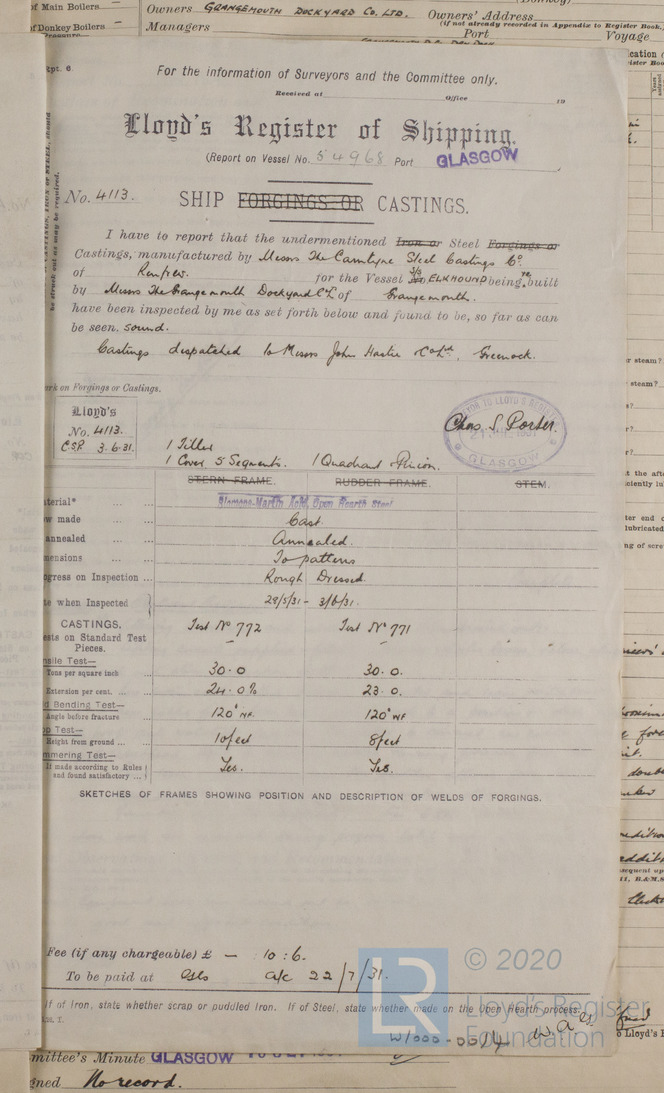 of Main Boilers
Owners GRANGEMOUTH DOCKYARD CO. LTD.
Owners' Address
(if not already recorded in Appendix to Register Book.)
of Donkey Boilers
Managers
Port Voyage
Rpt. 6
For the information of Surveyors and the Committee only.
Received at Office 19
Lloyd's Register of Shipping.
(Report on Vessel No. 54968 Port GLASGOW
No. 4113. SHIP FORGINGS OR CASTINGS.
I have to report that the undermentioned Iron or Steel Forgings or
Castings, manufactured by Messrs The Carntyne Steel Castings Co.
of Renfrew. for the Vessel S/S ELKHOUND being re built
by Messrs The Grangemouth Dockyard Co Ld of Grangemouth.
have been inspected by me as set forth below and found to be, so far as can
be seen, sound.
Castings dispatched to Messrs John Hastie & Co Ld, Greenock.
Mark on Forgings or Castings.
Lloyd's
No. 4113.
C.S.P. 3.6.31.
Chas. S. Porter.
GLASGOW
1 Tiller
1 Cover 5 Segments. 1 Quadrant & Pinion.
STERN FRAME. RUDDER FRAME. STEM.
Material* Siemens-Martin Acid Open Hearth Steel
How made Cast.
annealed Annealed.
Dimensions To patterns
Progress on Inspection Rough Dressed.
Date when Inspected 29/5/31 - 3/6/31.
CASTINGS. Test No 772 Test No 771
Tests on Standard Test
Pieces.
Tensile Test—
Tons per square inch 30.0 30.0.
Extension per cent. 24.0% 23.0.
Cold Bending Test—
Angle before fracture 120° NF. 120° NF
Drop Test—
Height from ground 10 feet 8 feet
Hammering Test—
If made according to Rules Yes. Yes.
and found satisfactory
SKETCHES OF FRAMES SHOWING POSITION AND DESCRIPTION OF WELDS OF FORGINGS.
Fee (if any chargeable) £ — : 10 : 6.
To be paid at Gls a/c 22/7/31.
If of Iron, state whether scrap or puddled Iron. If of Steel, state whether made on the Open Hearth process.
LR © 2020
Lloyd's Register
Foundation
W1000-0014
Committee's Minute GLASGOW
No record.